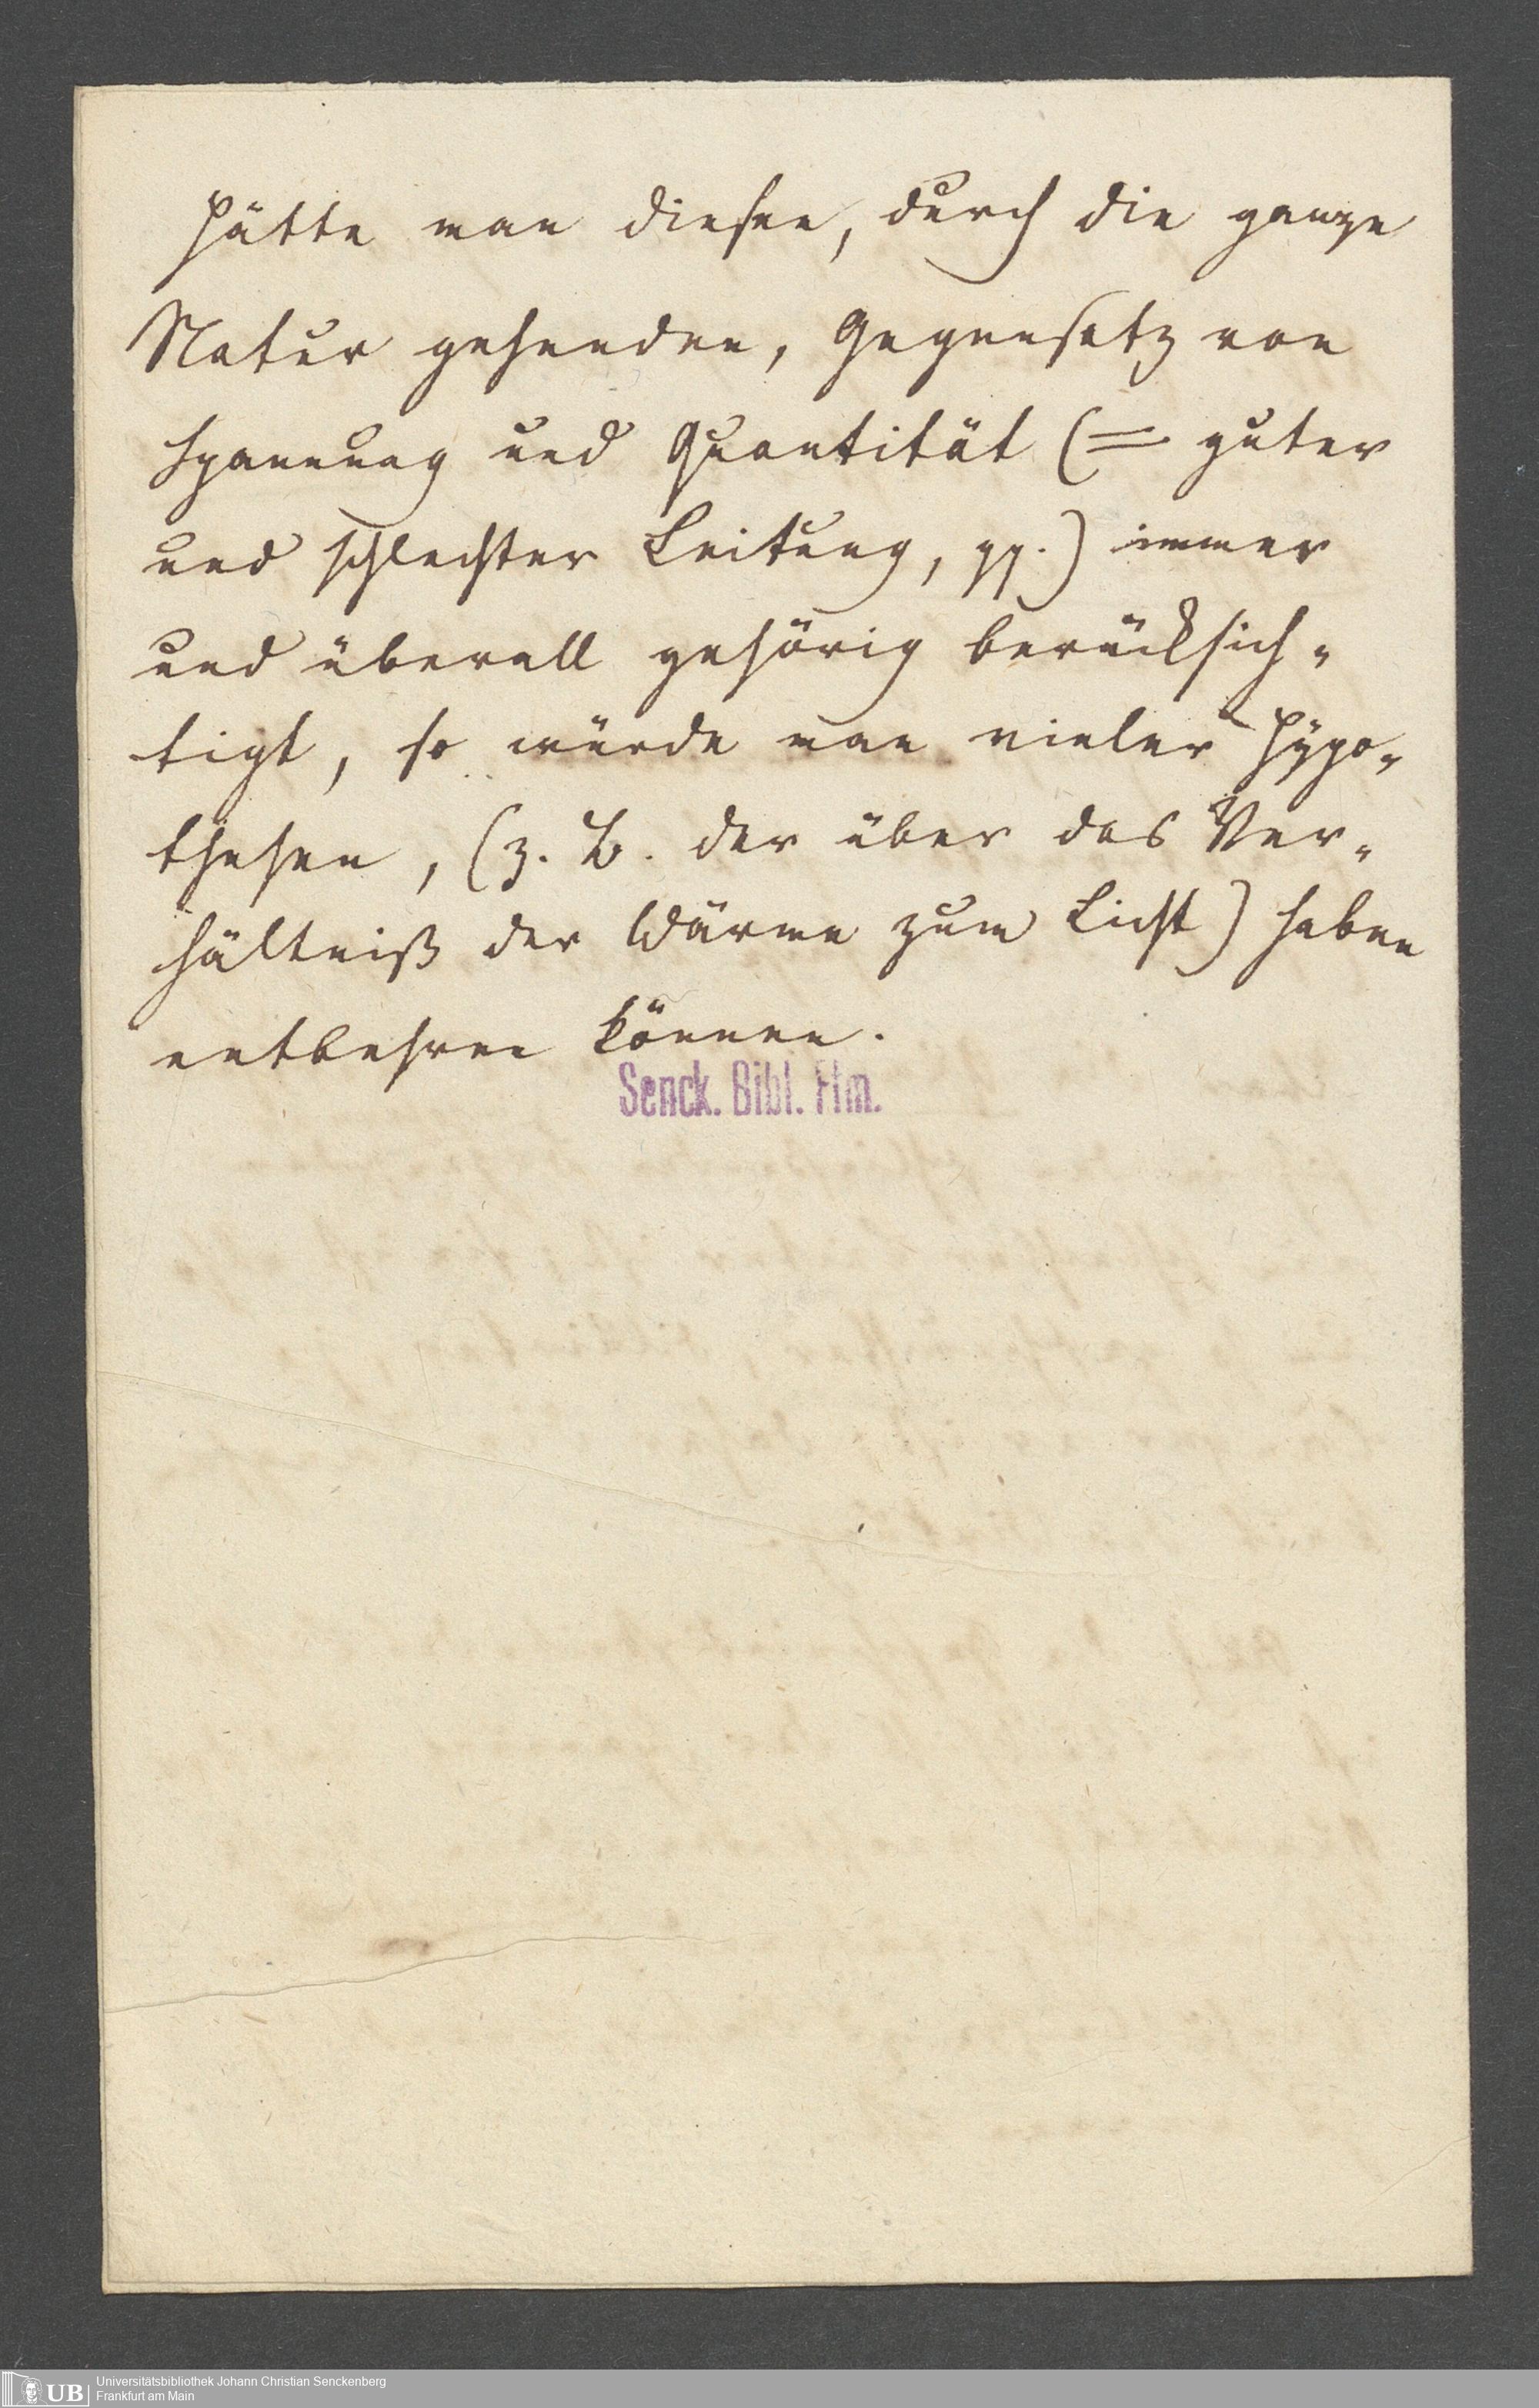 Hätte man diesen, durch die ganze
Natur gehenden, Gegensatz von
Spannung und Quantität (= guter
und schlechter Leitung, pp.) immer
und überall gehörig berücksich-
tigt, so würde man vieler Hypo-
thesen, (z. B. der über das Ver-
hältniß der Wärme zum Licht) haben
entbehren können.
Senck. Bibl. Ffm.
UB Universitätsbibliothek Johann Christian Senckenberg
Frankfurt am Main